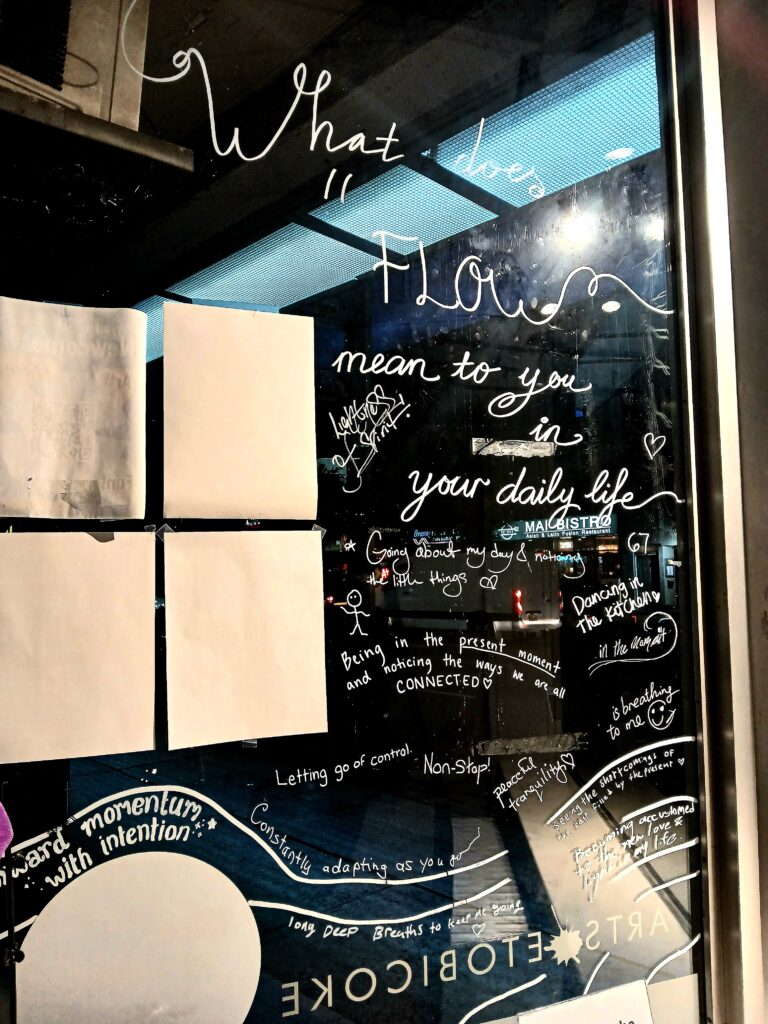 What does
"
FLOW
mean to you
in
your daily life
Lightness
of Spirit!
MAI BISTRO
Asian & Latin Fusion Restaurant
* Going about my day & noticing
the little things ♡
67
Dancing in
The Kitchen
in the moment
Being in the present moment
and noticing the ways we are all
CONNECTED ♡
is breathing
to me
Letting go of control.
Non-Stop!
peaceful
tranquility ♡
Seeing the shortcomings of
the past filled by the present ♡
Becoming accustomed
to the new love &
light in my life.
momentum
with intention
Constantly adapting as you go
long Deep Breaths to keep me going
ARTS ETOBICOKE